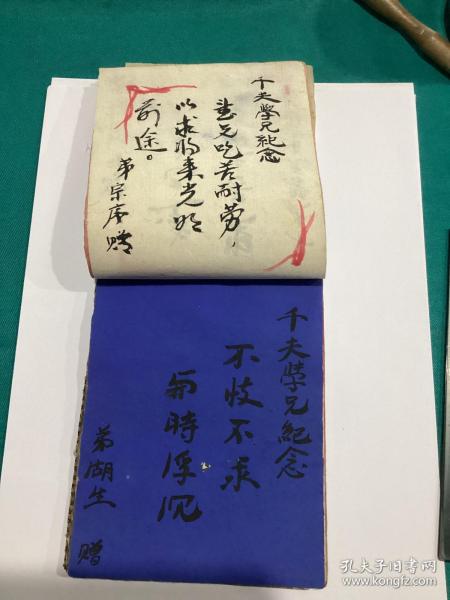 千夫學兄紀念
望兄吃苦耐勞，
以求将来光明
前途。
弟宗 赠
千夫學兄紀念
不忮不求
与時浮沉
弟湖生 赠
孔夫子旧书网
www.kongfz.com